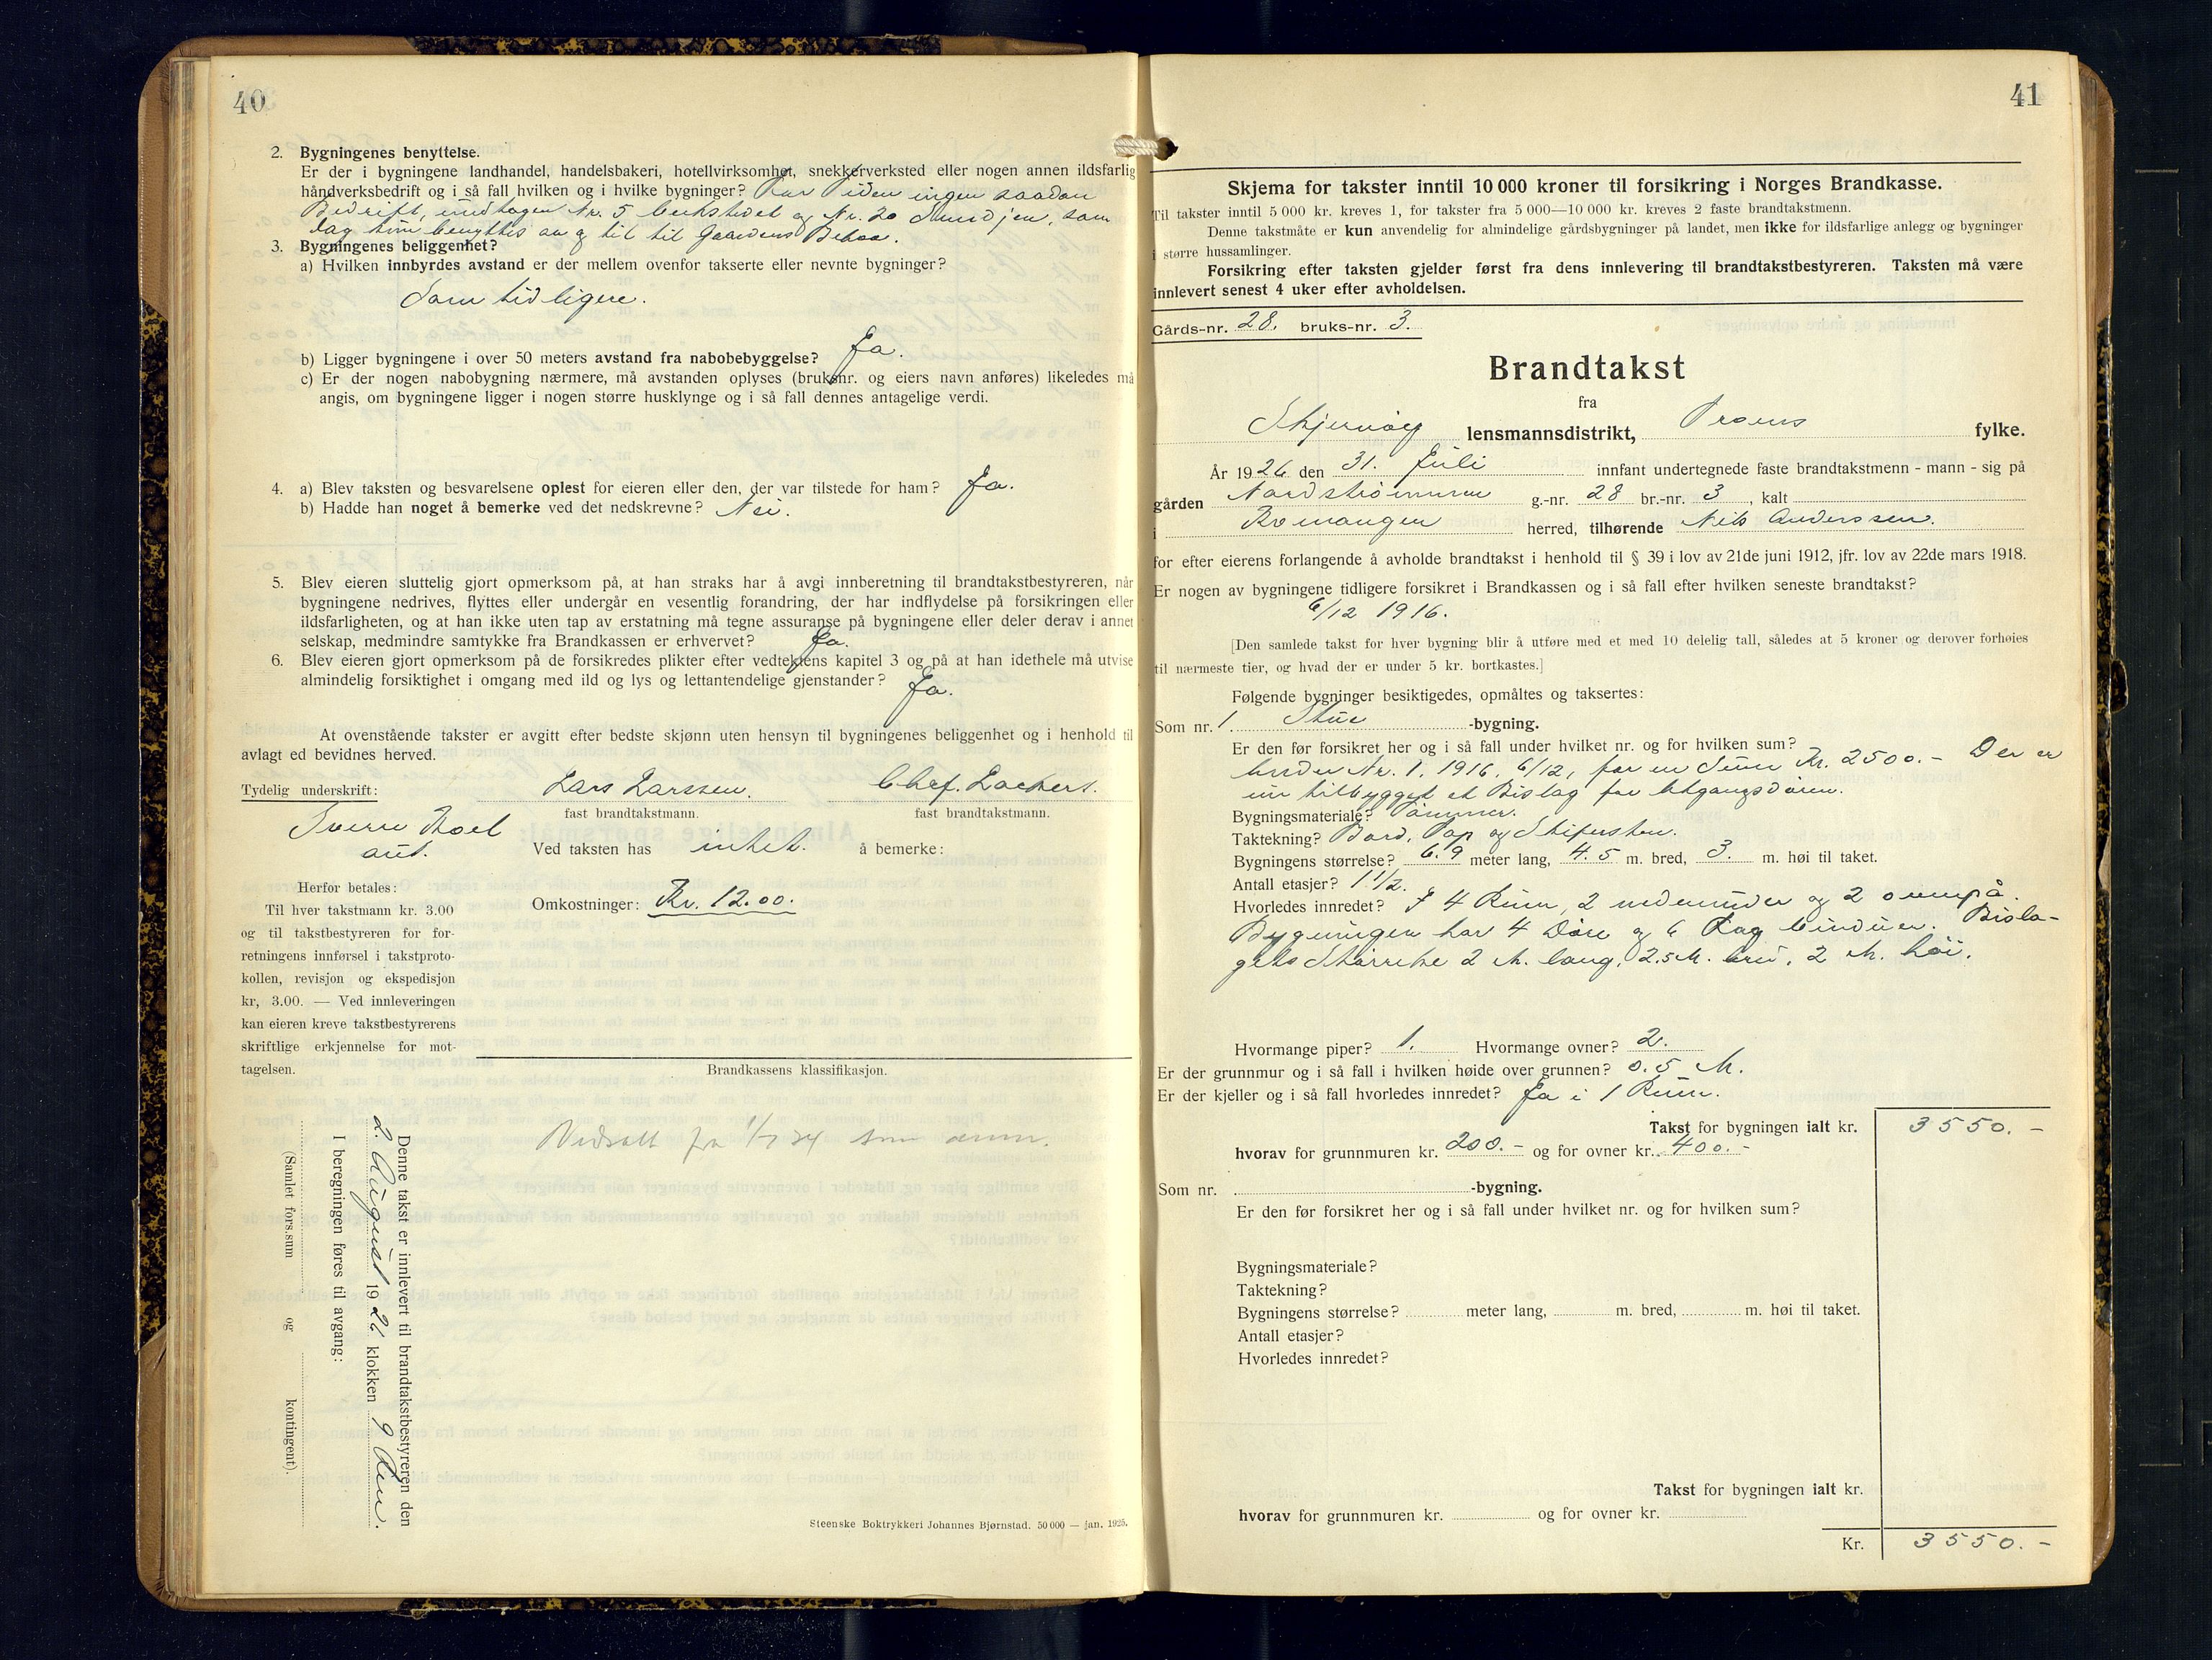 40
2. Bygningenes benyttelse.
Er der i bygningene landhandel, handelsbakeri, hotellvirksomhet, snekkerverksted eller nogen annen ildsfarlig
håndverksbedrift og i så fall hvilken og i hvilke bygninger? For Tiden ingen saadan
Bedrift, undtagen Nr. 5 og Nr. 20 som
benyttes av og til til Gaardens Behov.
3. Bygningenes beliggenhet?
a) Hvilken innbyrdes avstand er der mellem ovenfor takserte eller nevnte bygninger?
Som tidligere.
b) Ligger bygningene i over 50 meters avstand fra nabobebyggelse? Ja.
c) Er der nogen nabobygning nærmere, må avstanden oplyses (bruksnr. og eiers navn anføres) likeledes må
angis, om bygningene ligger i nogen større husklynge og i så fall dennes antagelige verdi.
4. a) Blev taksten og besvarelsene oplest for eieren eller den, der var tilstede for ham? Ja.
b) Hadde han noget å bemerke ved det nedskrevne? Nei.
5. Blev eieren sluttelig gjort opmerksom på, at han straks har å avgi innberetning til brandtakstbestyreren, når
bygningene nedrives, flyttes eller undergår en vesentlig forandring, der har indflydelse på forsikringen eller
ildsfarligheten, og at han ikke uten tap av erstatning må tegne assuranse på bygningene eller deler derav i annet
selskap, medmindre samtykke fra Brandkassen er erhvervet? Ja.
6. Blev eieren gjort opmerksom på de forsikredes plikter efter vedtektens kapitel 3 og på at han idethele må utvise
almindelig forsiktighet i omgang med ild og lys og lettantendelige gjenstander? Ja.
At ovenstående takster er avgitt efter bedste skjønn uten hensyn til bygningenes beliggenhet og i henhold til
avlagt ed bevidnes herved.
Tydelig underskrift: Lars Larssen. Chrf. Lockert.
fast brandtakstmann. fast brandtakstmann.
Sverre Roel
aut.
Ved taksten has intet. å bemerke:
Herfor betales:
Til hver takstmann kr. 3.00
og til takstbestyreren for for-
retningens innførsel i takstproto-
kollen, revisjon og ekspedisjon
kr, 3.00. — Ved innleveringen
kan eieren kreve takstbestyrerens
skriftlige erkjennelse for mot-
tagelsen.
Omkostninger: Kr. 12.00.
Brandkassens klassifikasjon.
Nedsatt fra 1/7 34 som
Denne takst er innlevert til brandtakstbestyreren den
2. August 1926 klokken 9 Em.
I beregningen føres til avgang:
(Samlet fors.sum og kontingent).
Steenske Boktrykkeri Johannes Bjørnstad. 50 000 — jan. 1925.
41
Skjema for takster inntil 10 000 kroner til forsikring i Norges Brandkasse.
Til takster inntil 5 000 kr. kreves 1, for takster fra 5 000—10 000 kr. kreves 2 faste brandtakstmenn.
Denne takstmåte er kun anvendelig for almindelige gårdsbygninger på landet, men ikke for ildsfarlige anlegg og bygninger
i større hussamlinger.
Forsikring efter taksten gjelder først fra dens innlevering til brandtakstbestyreren. Taksten må være
innlevert senest 4 uker efter avholdelsen.
Gårds-nr. 28. bruks-nr. 3.
Brandtakst
fra
Skjervøy lensmannsdistrikt, Troms fylke.
År 1926 den 31. Juli innfant undertegnede faste brandtakstmenn - mann - sig på
gården Nordstrømmen g.-nr. 28 br.-nr. 3, kalt
i Kvænangen herred, tilhørende Nils Anderssen.
for efter eierens forlangende å avholde brandtakst i henhold til § 39 i lov av 21de juni 1912, jfr. lov av 22de mars 1918.
Er nogen av bygningene tidligere forsikret i Brandkassen og i så fall efter hvilken seneste brandtakst?
6/12 1916.
[Den samlede takst for hver bygning blir å utføre med et med 10 delelig tall, således at 5 kroner og derover forhøies
til nærmeste tier, og hvad der er under 5 kr. bortkastes.]
Følgende bygninger besiktigedes, opmåltes og taksertes:
Som nr. 1. Stue -bygning.
Er den før forsikret her og i så fall under hvilket nr. og for hvilken sum?
Under Nr. 1. 1916, 6/12, for en Sum Kr. 2500.- Der er
nu tilbygget et Bislag for Utgangsdøren.
Bygningsmateriale? Tømmer.
Taktekning? Bord, Pap og Skifersten.
Bygningens størrelse? 6.9 meter lang, 4.5 m. bred, 3. m. høi til taket.
Antall etasjer? 1 1/2.
Hvorledes innredet? I 4 Rum, 2 nedenunder og 2 ovenpå.
Bygningen har 4 Døre og 6 Fag Vinduer. Bisla-
gets Størrelse 2 M. lang, 2.5 M. bred, 2 M. høi.
Hvormange piper? 1. Hvormange ovner? 2.
Er der grunnmur og i så fall i hvilken høide over grunnen? 0.5 M.
Er der kjeller og i så fall hvorledes innredet? Ja i 1 Rum.
Takst for bygningen ialt kr. 3550.-
hvorav for grunnmuren kr. 200.- og for ovner kr. 400.-
Som nr. -bygning.
Er den før forsikret her og i så fall under hvilket nr. og for hvilken sum?
Bygningsmateriale?
Taktekning?
Bygningens størrelse? meter lang, m. bred, m. høi til taket.
Antall etasjer?
Hvorledes innredet?
Takst for bygningen ialt kr.
hvorav for grunnmuren kr. og for ovner kr.
Kr. 3550.-